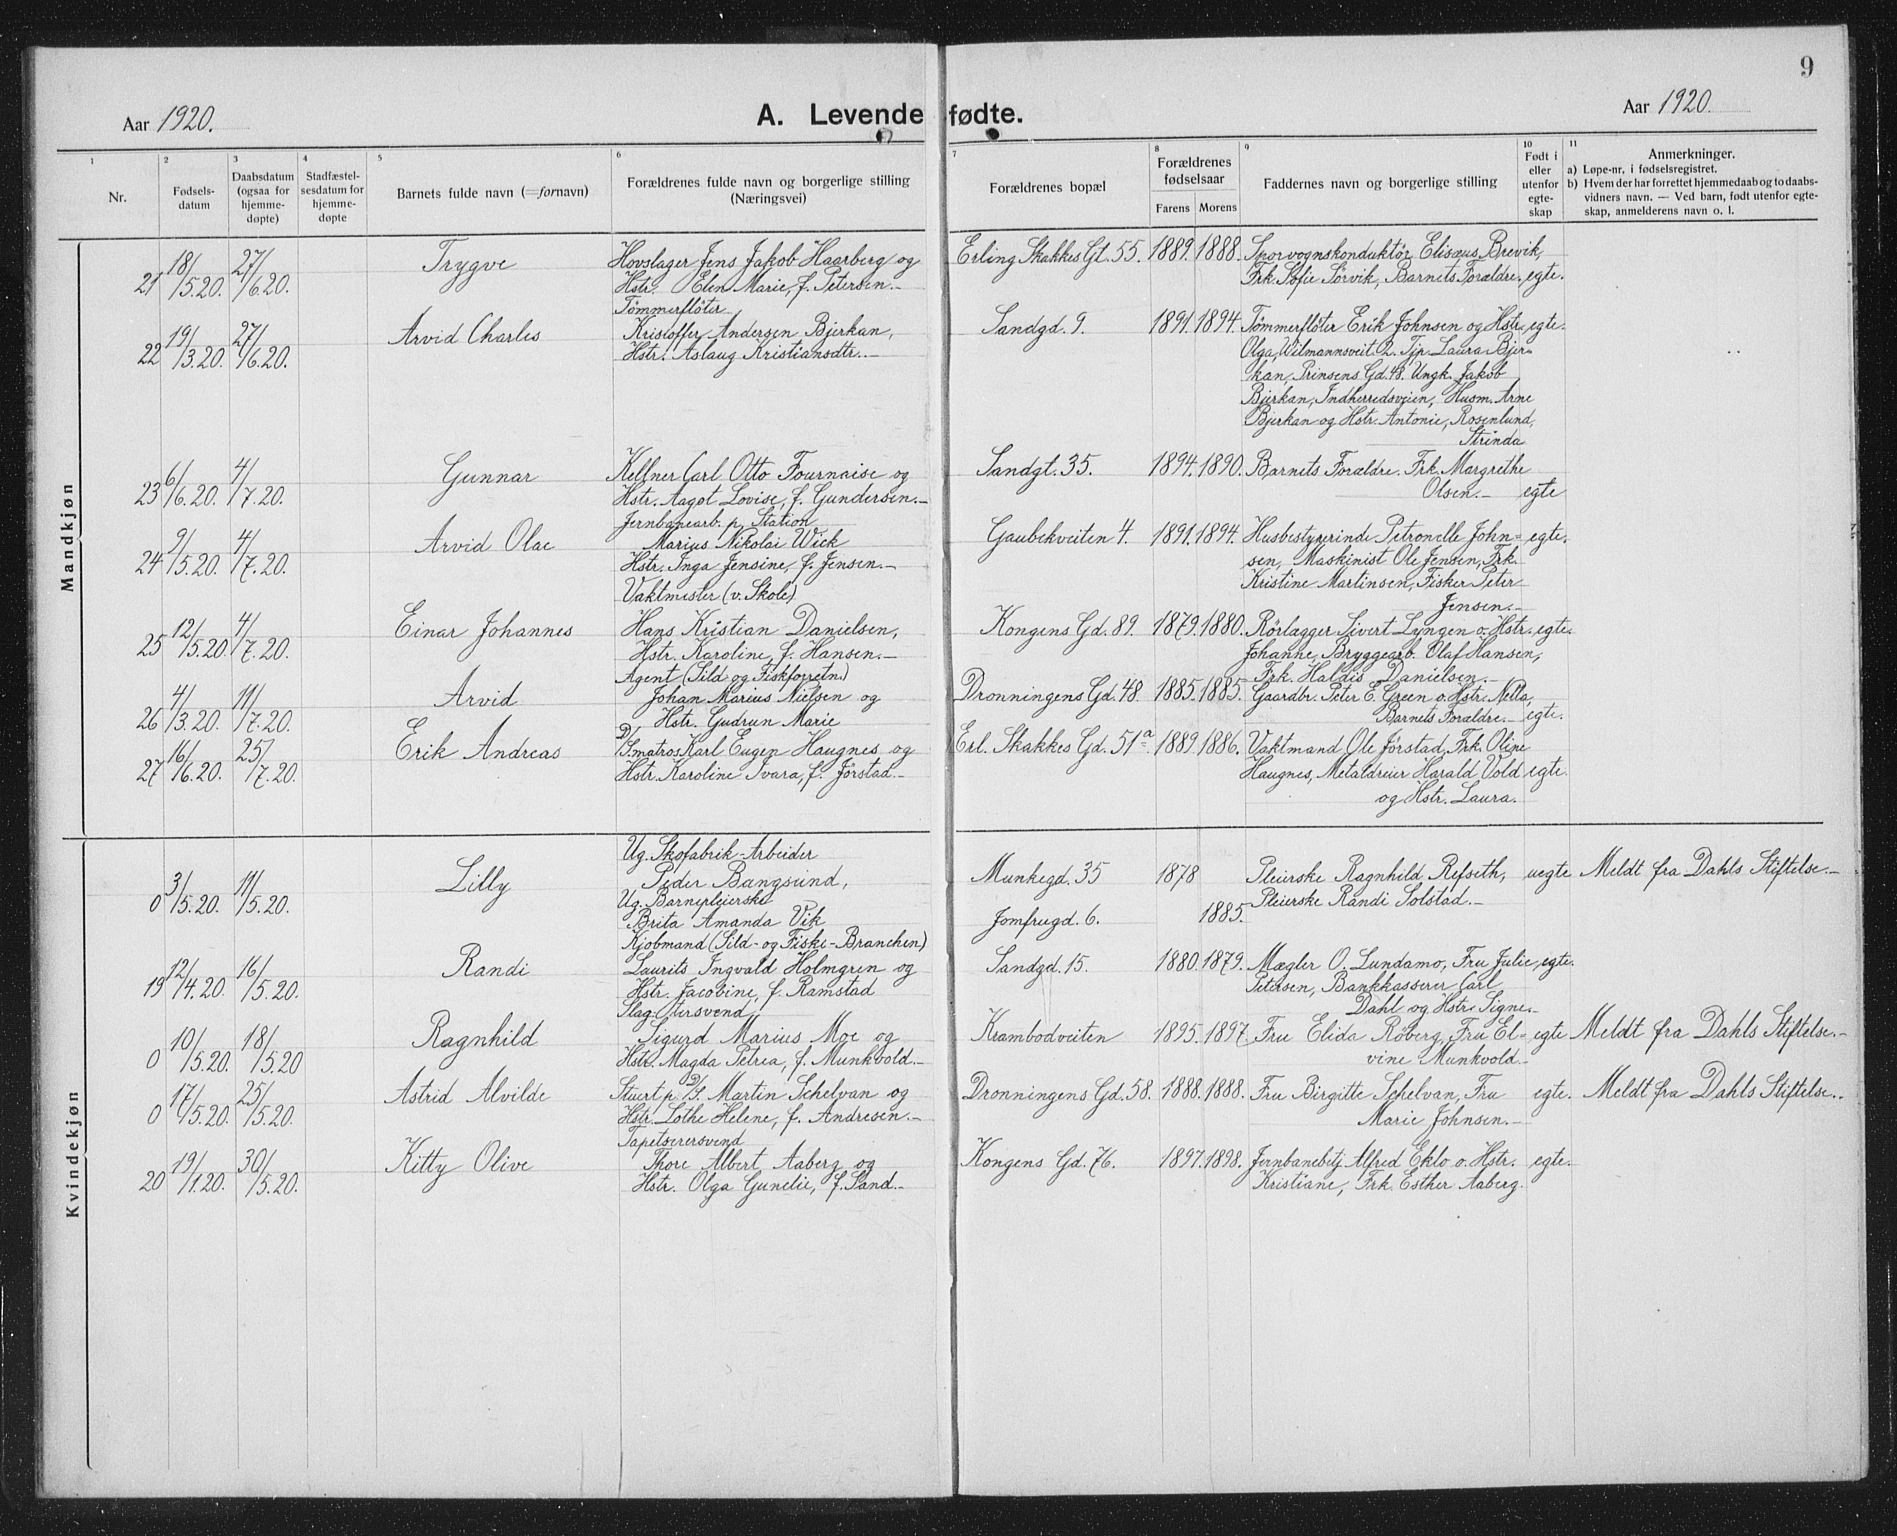 9
Aar 1920.
A. Levendefødte.
Aar 1920.
1 2 3 4 5 6 7 8 9 10 11
Nr.
Fødsels-
datum
Daabsdatum
(ogsaa for
hjemme-
døpte)
Stadfæstel-
sesdatum for
hjemme-
døpte
Barnets fulde navn (=fornavn)
Forældrenes fulde navn og borgerlige stilling
(Næringsvei)
Forældrenes bopæl
Forældrenes
fødselsaar
Farens Morens
Faddernes navn og borgerlige stilling
Født i
eller
utenfor
egte-
skap
Anmerkninger.
a) Løpe-nr. i fødselsregistret.
b) Hvem der har forrettet hjemmedaab og to daabs-
vidners navn. — Ved barn, født utenfor egte-
skap, anmelderens navn o. l.
Mandkjøn
21 18/5.20. 27/6.20. Trygve
Hovslager Jens Jakob Haarberg og
Hstr. Elen Marie, f. Petersen.-
Erling Skakkes Gt. 55. 1889. 1888.
Sporvognskonduktör Elisæus Brevik,
Frk. Sofie Sörvik, Barnets Forældre. egte.
22 19/3.20. 27/6.20. Arvid Charles
Tömmerflöter
Kristoffer Andersen Bjerkan,
Hstr. Aslaug Kristiansdtr.-
Sandgd. 9. 1891. 1894.
Tömmerflöter Erik Johnsen og Hstr. egte.
Olga, Wilmannsveit. 2. Tjp. Laura Bjer-
kan, Prinsens Gd. 48. Ungk. Jakob
Bjerkan, Indherredsveien, Husm. Arne
Bjerkan og Hstr. Antonie, Rosenlund,
Strinda
23 6/6.20. 4/7.20. Gunnar
Kellner Carl Otto Fournaise og
Hstr. Aagot Lovise, f. Gundersen.-
Sandgt. 35. 1894. 1890.
Barnets Forældre. Frk. Margrethe
Olsen.- egte
24 9/5.20. 4/7.20. Arvid Olae
Jernbanearb. p. Station
Marius Nikolai Wick
Hstr. Inga Jensine, f. Jensen.-
Gaubekveiten 4. 1891. 1894.
Husbestyrerinde Petronelle John- egte.
sen, Maskinist Ole Jensen, Frk.
Kristine Martinsen, Fisker Peter
Jensen.-
25 12/5.20. 4/7.20. Einar Johannes
Vaktmester (v. Skole)
Hans Kristian Danielsen,
Hstr. Karoline, f. Hansen.-
Kongens Gd. 89. 1879. 1880.
Rörlægger Sivert Lyngen o. Hstr. egte.
Johanne, Bryggearb. Olaf Hansen,
Frk. Haldis Danielsen.-
26 4/3.20. 11/7.20. Arvid
Agent (Sild og Fiskforretn.)
Johan Marius Nielsen og
Hstr. Gudrun Marie
Dronningens Gd. 48. 1885. 1885.
Gaardbr. Peter E. Green o. Hstr. Netta,
Barnets Forældre.- egte.
27 16/6.20. 25/7.20. Erik Andreas
D/S. matros Karl Eugen Haugnes og
Hstr. Karoline Ivara, f. Jörstad.-
Erl. Skakkes Gd. 51a. 1889. 1886.
Vaktmand Ole Jörstad, Frk. Oline
Haugnes, Metaldreier Harald Vold egte.
og Hstr. Laura.
Kvindekjøn
0 3/5.20. 11/5.20. Lilly
Ug. Skofabrik-Arbeider
Peder Bangsund,
Ug. Barnepleierske
Brita Amanda Vik
Munkegd. 35 1878
Jomfrugd. 6. 1885.
Pleierske Ragnhild Refseth, uegte
Pleierske Randi Solstad.-
Meldt fra Dahls Stiftelse.-
19 12/4.20. 16/5.20. Randi
Kjöbmand (Sild- og Fiske-Branchen)
Laurits Ingvald Holmgren og
Hstr. Jacobine, f. Ramstad
Sandgd. 15. 1880. 1879.
Mægler O. Lundamo, Fru Julie egte.
Petersen, Bankkasserer Carl
Dahl og Hstr. Signe.-
0 10/5.20. 18/5.20 Ragnhild
Sigurd Marius Moe og
Hstr. Magda Petrea, f. Munkvold.-
Krambodveiten 1895. 1897.
Fru Elida Röberg, Fru El- egte
vine Munkvold.-
Meldt fra Dahls Stiftelse.-
0 17/5.20. 25/5.20. Astrid Alvilde
Stuert p. D/S. Martin Schelvan og
Hstr. Lothe Helene, f. Andresen.-
Dronningens Gd. 58. 1888. 1888.
Fru Birgitte Schelvan, Fru egte.
Marie Johnsen.-
Meldt fra Dahls Stiftelse..
20 19/1.20. 30/5.20. Kitty Olive
Tapetserersvend
Thore Albert Aaberg og
Hstr. Olga Gunelie, f. Sand.-
Kongens Gd. 76. 1897. 1898.
Jernbanebetj. Alfred Eklo o. Hstr. egte.
Kristiane, Frk. Esther Aaberg.